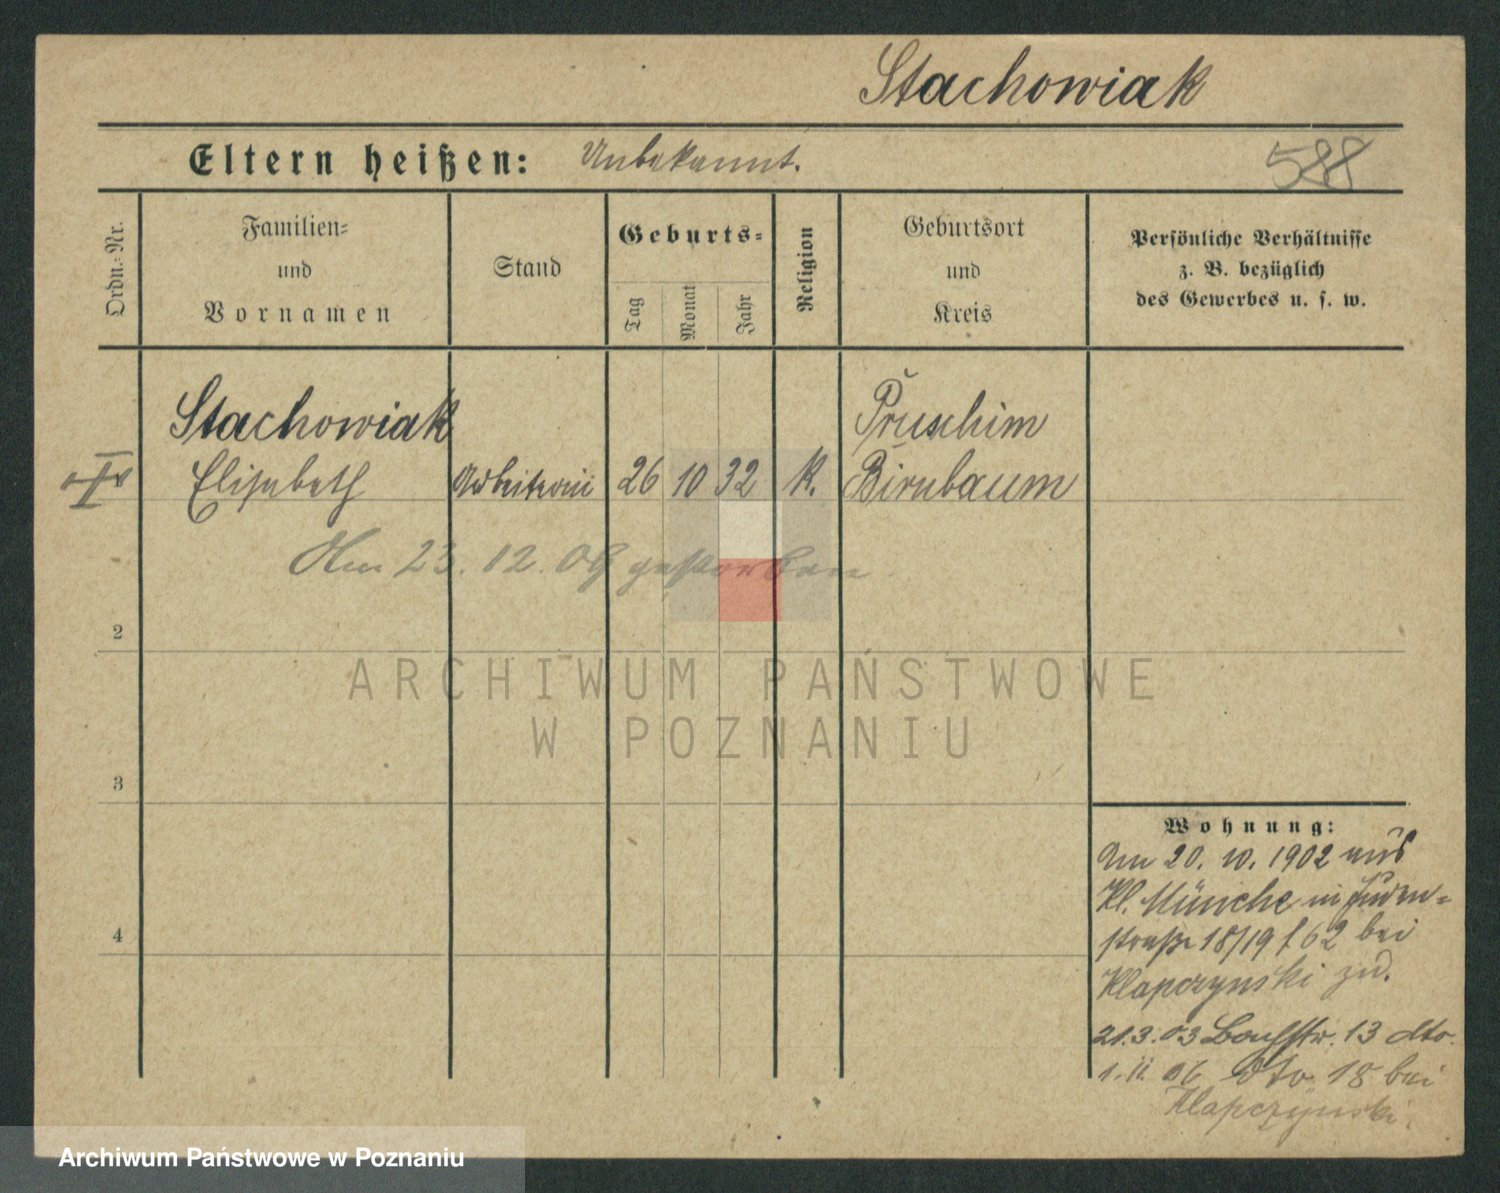 Stachowiak
Eltern heißen: Unbekannt.
588
Ordn.-Nr.
Familien-
und
Vornamen
Stand
Geburts-
Tag
Monat
Jahr
Religion
Geburtsort
und
Kreis
Persönliche Verhältnisse
z. B. bezüglich
des Gewerbes u. s. w.
Stachowiak
Elisabeth
Arbeiterin
26 10 32
K.
Pruschim
Birnbaum
Am 23. 12. 09 gestorben
2
3
4
Wohnung:
Am 20. 10. 1902 aus
Kl. Münche in Juden=
straße 18/19 f 62 bei
Klapczynski
21.3.03 Bachstr. 13 dto.
1. 11. 06 dto 18 bei
Klapczynski.
ARCHIWUM PAŃSTWOWE
W POZNANIU
Archiwum Państwowe w Poznaniu